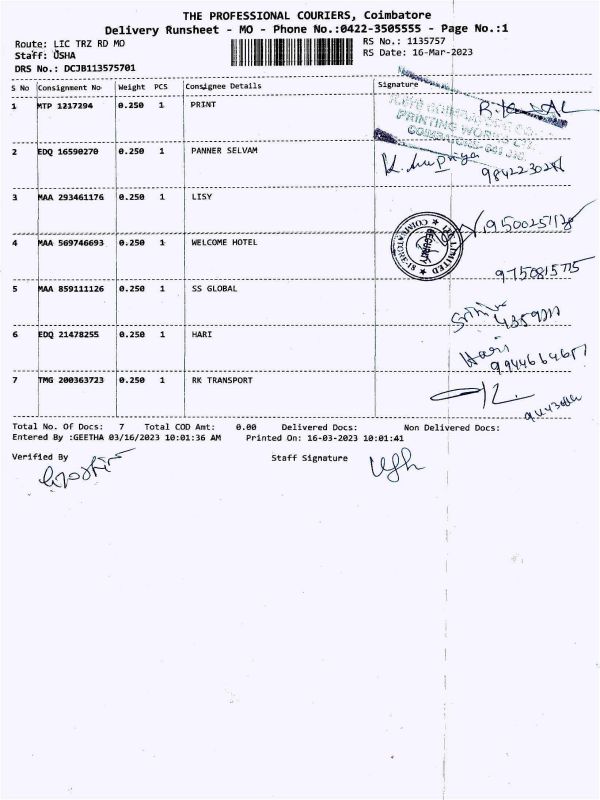 THE PROFESSIONAL COURIERS, Coimbatore
Delivery Runsheet - MO - Phone No.:0422-3505555 - Page No.:1
Route: LIC TRZ RD MO
RS No.: 1135757
Staff: USHA
RS Date: 16-Mar-2023
DRS No.: DCJB113575701
S No Consignment No Weight PCS Consignee Details Signature
1 MTP 1217294 0.250 1 PRINT
2 EDQ 16590270 0.250 1 PANNER SELVAM
3 MAA 293461176 0.250 1 LISY
4 MAA 569746693 0.250 1 WELCOME HOTEL
9750815775
5 MAA 859111126 0.250 1 SS GLOBAL
6 EDQ 21478255 0.250 1 HARI
Hari
7 TMG 200363723 0.250 1 RK TRANSPORT
Total No. Of Docs: 7 Total COD Amt: 0.00 Delivered Docs: Non Delivered Docs:
Entered By :GEETHA 03/16/2023 10:01:36 AM Printed On: 16-03-2023 10:01:41
Verified By Staff Signature